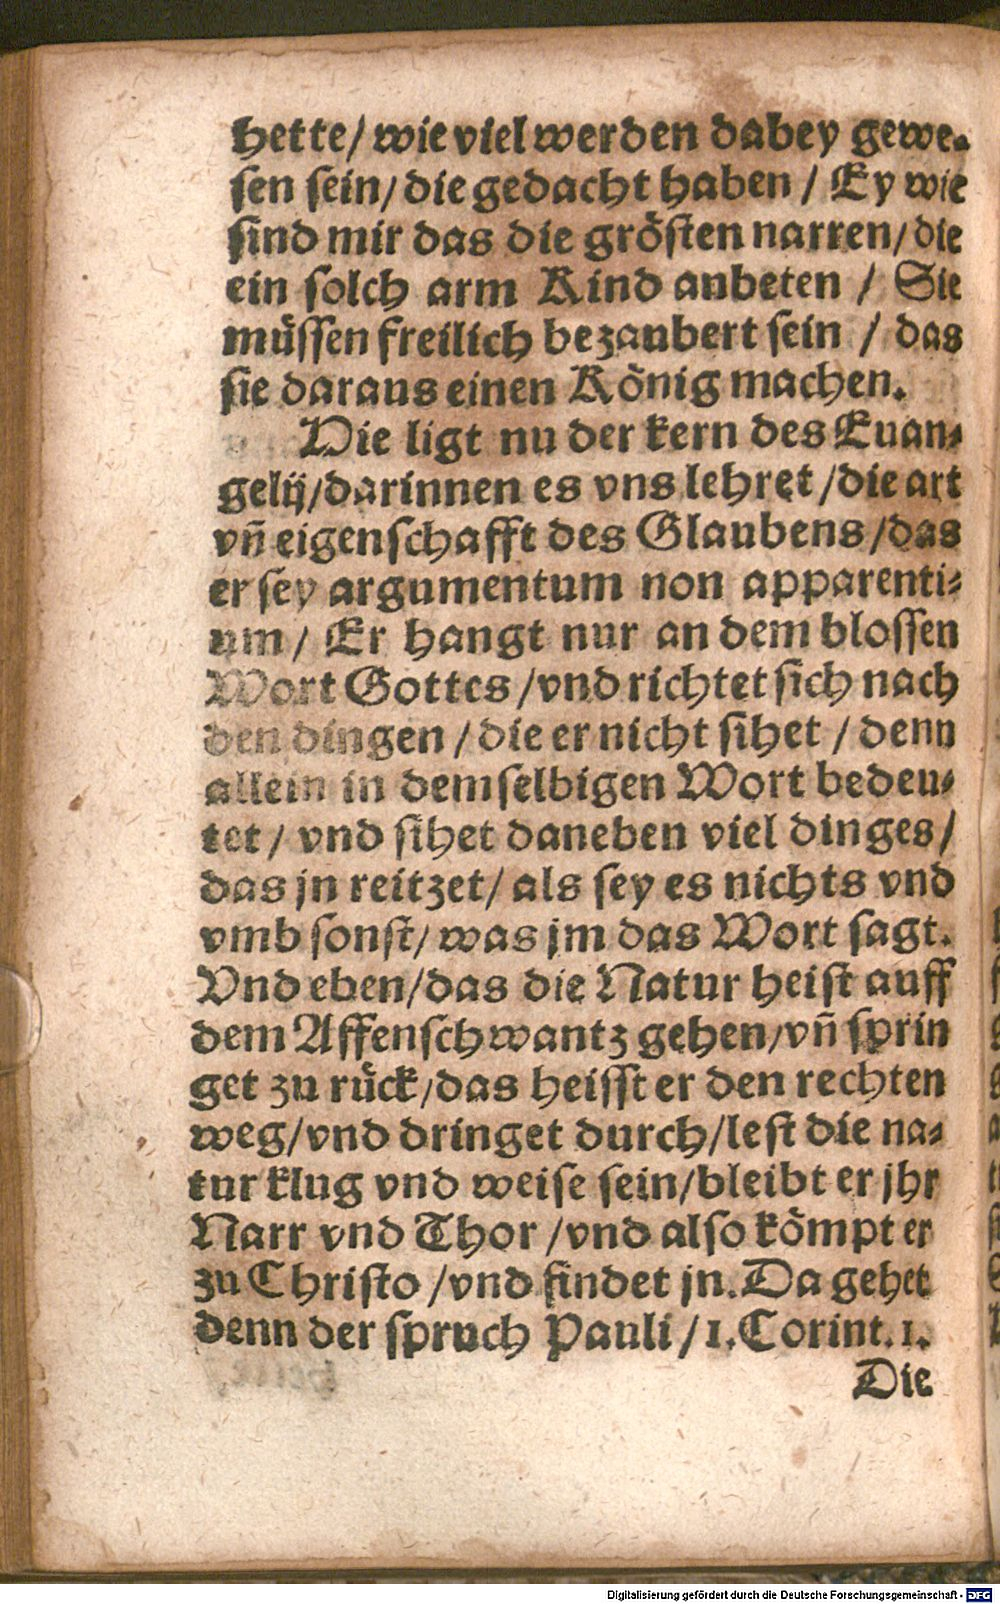 hette/ wie viel werden dabey gewe⸗
sen sein/ die gedacht haben / Ey wie
sind mir das die grösten narren/ die
ein solch arm Kind anbeten / Sie
müssen freilich bezaubert sein / das
sie daraus einen König machen.
Hie ligt nu der kern des Euan⸗
gelij/ darinnen es vns lehret / die art
vñ eigenschafft des Glaubens / das
er sey argumentum non apparenti⸗
um / Er hangt nur an dem blossen
Wort Gottes / vnd richtet sich nach
den dingen / die er nicht sihet / denn
allein in demselbigen Wort bedeu⸗
tet / vnd sihet daneben viel dinges /
das jn reitzet/ als sey es nichts vnd
vmb sonst/ was jm das Wort sagt.
Vnd eben/ das die Natur heist auff
dem Affenschwantz gehen/ vñ sprin
get zu rück/ das heisst er den rechten
weg/ vnd dringet durch/ lest die na⸗
tur klug vnd weise sein/ bleibt er jhr
Narr vnd Thor / vnd also kömpt er
zu Christo / vnd findet jn. Da gehet
denn der spruch Pauli / 1. Corint. 1.
Die
Digitalisierung gefördert durch die Deutsche Forschungsgemeinschaft - DFG